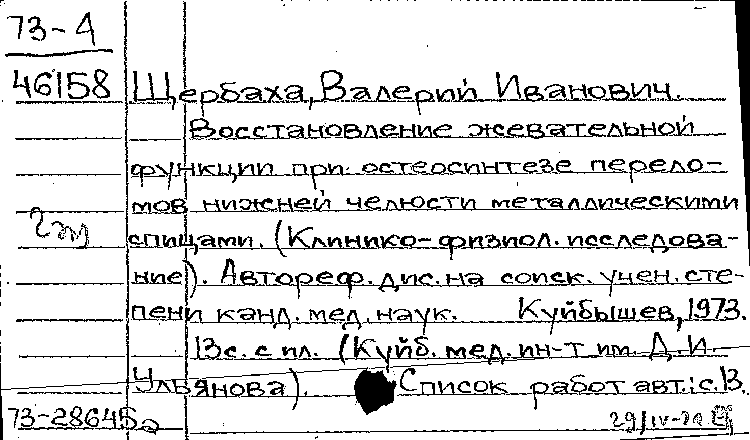 73-4
46158 Щербаха, Валерий Иванович.
Восстановление жевательной
функции при остеосинтезе перело-
мов нижней челюсти металлическими
спицами. (Клинико-физиол. исследова-
ние). Автореф. дис. на соиск. учен. сте-
пени канд. мед. наук. Куйбышев, 1973.
13с. с ил. (Куйб. мед. ин-т им. Д. И.
Ульянова). Список работ авт.: с. 13.
73-28645